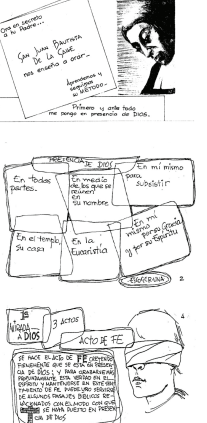 Ora en secreto
a tu Padre...
San Juan Bautista
De La Salle
nos enseña a orar...
Aprendamos y
sigamos
su MÉTODO.
Primero y ante todo
me pongo en presencia de DIOS.
PRESENCIA DE DIOS
En todas
partes.
En medio
de los que se
reúnen
en
su nombre
En mí mismo
para
subsistir
En el templo,
su casa
En la
Eucaristía
En mí
mismo
por su Gracia
y por su Espíritu
2
1ª
MIRADA
A DIOS
3 ACTOS
4
ACTO DE FE
SE HACE EL ACTO DE FE CREYENDO
FIRMEMENTE QUE SE ESTÁ EN PRESEN
CIA DE DIOS; Y PARA GRABARSE MÁS
PROFUNDAMENTE ESTA VERDAD EN EL
ESPÍRITU Y MANTENERSE EN ESTE SEN
TIMIENTO DE FE, PUEDE UNO SERVIRSE
DE ALGUNOS PASAJES BÍBLICOS RE
LACIONADOS CON EL ACTO CON QUE
SE HAYA PUESTO EN PRESEN
CIA DE DIOS